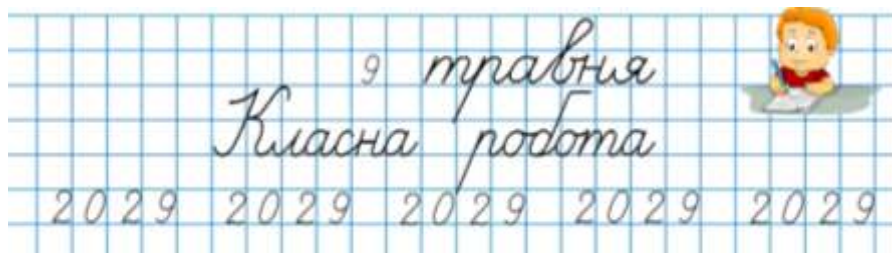 9 травня
Класна робота
2029 2029 2029 2029 2029